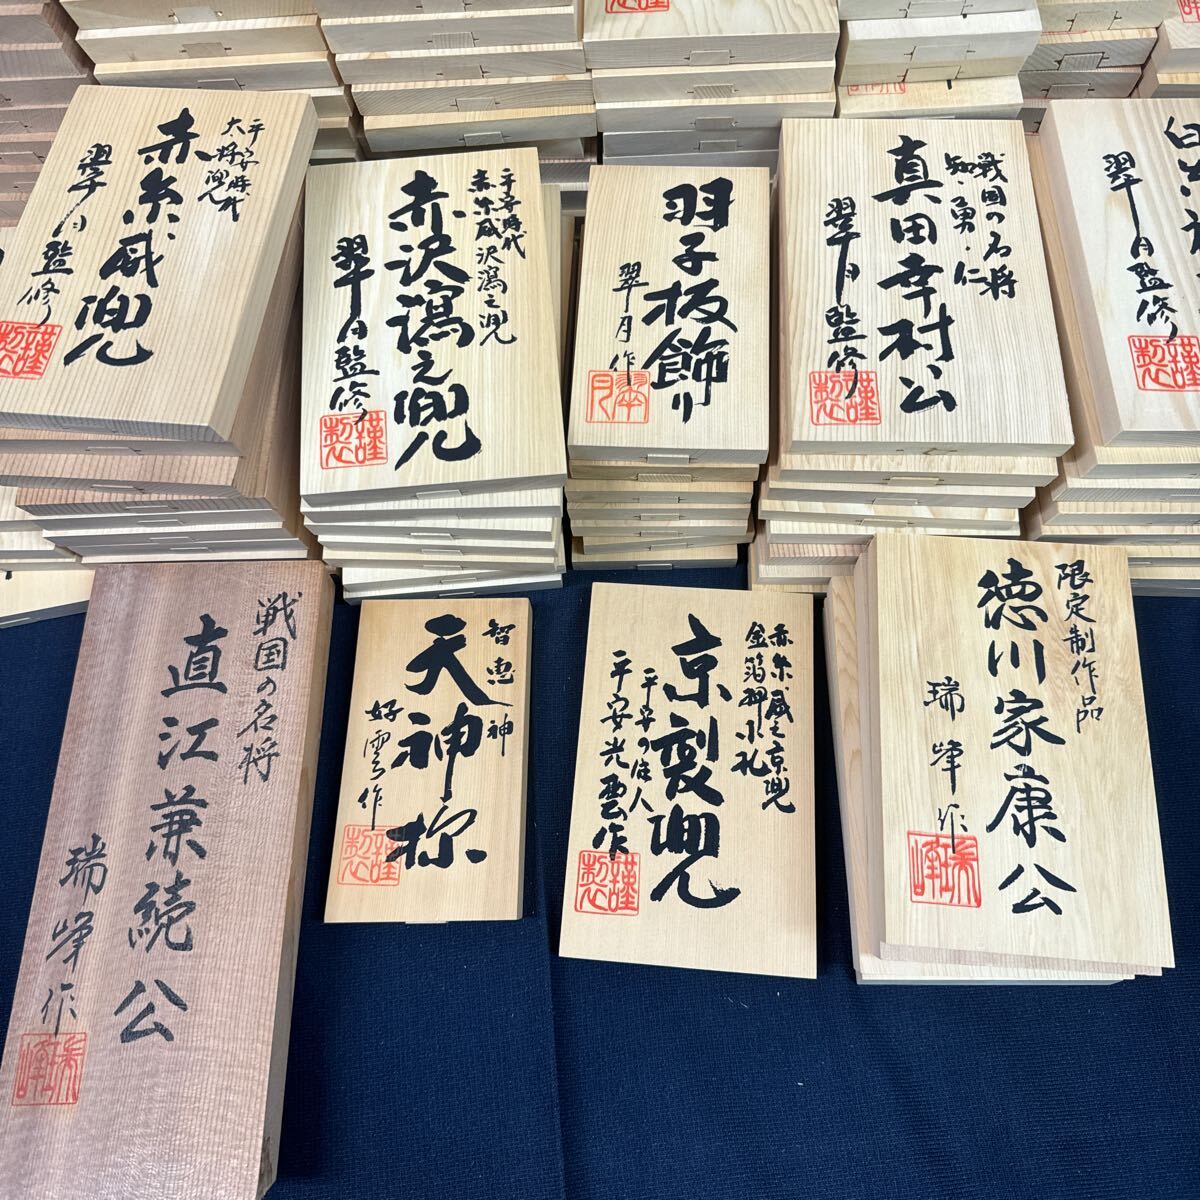 平安時代
大将兜
赤糸威兜
翠月監修
謹製
平安時代
赤糸威沢瀉之兜
赤沢瀉之兜
翠月監修
謹製
羽子板飾り
翠月作
翠月
戦国の名将
知・勇・仁
真田幸村公
翠月監修
謹製
白糸
翠月監修
謹製
戦国の名将
直江兼続公
瑞峰作
瑞峰
智恵神
天神様
好雲作
謹製
赤糸威之京兜
金箔押小札
京製兜
平安の住人
平安光雲作
謹製
限定制作品
徳川家康公
瑞峰作
瑞峰